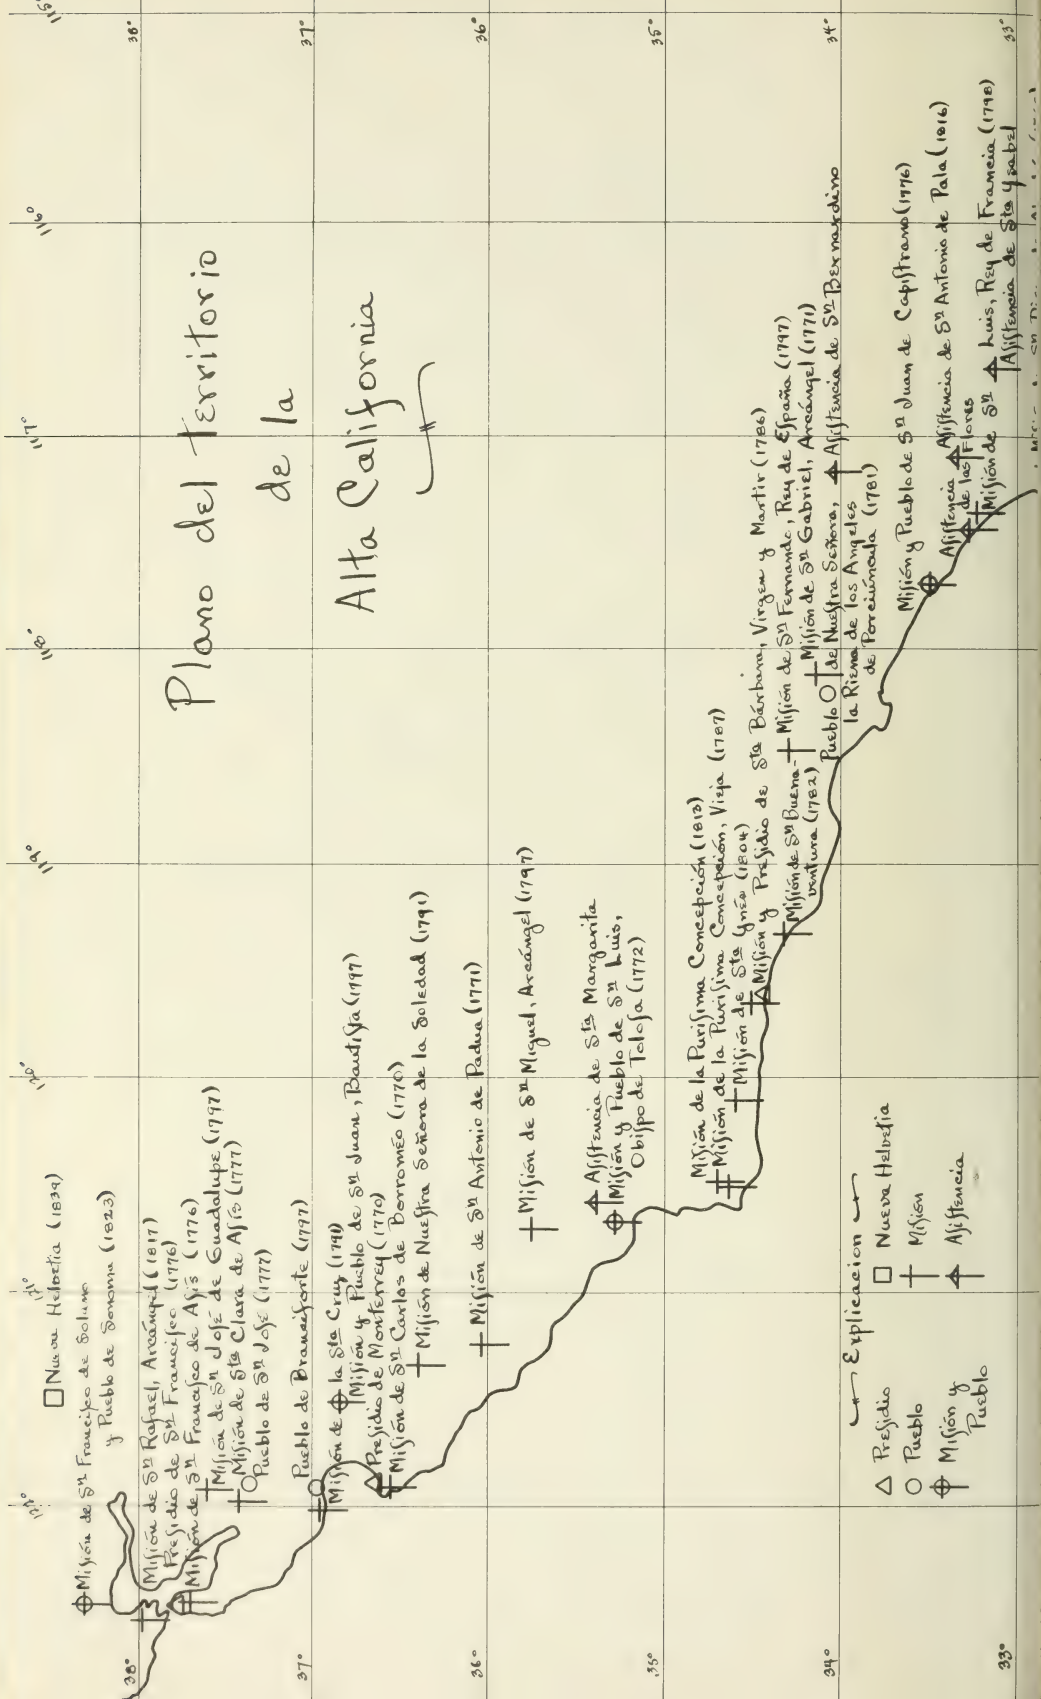 Plano del territorio
de la
Alta California
115°
116°
117°
118°
119°
120°
121°
38°
37°
36°
35°
34°
33°
38°
37°
36°
35°
34°
33°
Nueva Helvetia (1839)
Misión de Sn Francisco de Solano
y Pueblo de Sonoma (1823)
Misión de Sn Rafael, Arcángel (1817)
Presidio de Sn Francisco (1776)
Misión de Sn Francisco de Asís (1776)
Misión de Sn José de Guadalupe (1797)
Misión de Sta Clara de Asís (1777)
Pueblo de Sn José (1777)
Pueblo de Branciforte (1797)
Misión de la Sta Cruz (1791)
Misión y Pueblo de Sn Juan, Bautista (1797)
Presidio de Monterrey (1770)
Misión de Sn Carlos de Borroméo (1770)
Misión de Nuestra Señora de la Soledad (1791)
Misión de Sn Antonio de Padua (1771)
Misión de Sn Miguel, Arcángel (1797)
Asistencia de Sta Margarita
Misión y Pueblo de Sn Luis,
Obispo de Tolosa (1772)
Misión de la Purísima Concepción (1813)
Misión de la Purísima Concepción, Vieja (1787)
Misión de Sta Ynés (1804)
Misión y Presidio de Sta Bárbara, Virgen y Martir (1786)
Misión de Sn Buena-
ventura (1782)
Misión de Sn Fernando, Rey de España (1797)
Misión de Sn Gabriel, Arcángel (1771)
Pueblo de Nuestra Señora,
la Riena de los Angeles
de Porciúncula (1781)
Asistencia de Sn Bernardino
Misión y Pueblo de Sn Juan de Capistrano (1776)
Asistencia
de las Flores
Asistencia de Sn Antonio de Pala (1816)
Misión de Sn Luis, Rey de Francia (1798)
Asistencia de Sta Ysabel
Explicacion
Presidio
Pueblo
Misión y
Pueblo
Nueva Helvetia
Misión
Asistencia